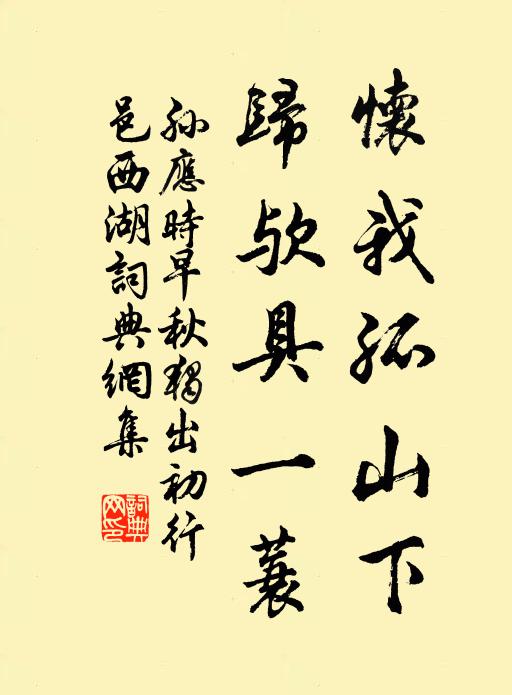 懷我孤山下
歸歟具一蓑
孫應時早秋獨出初行
邑西湖詞典網集
詞典
网印